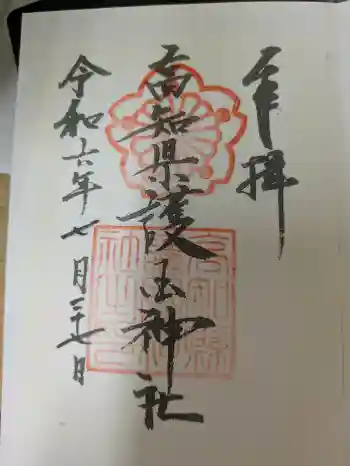 奉拝
高知県護国神社
令和六年七月三十七日